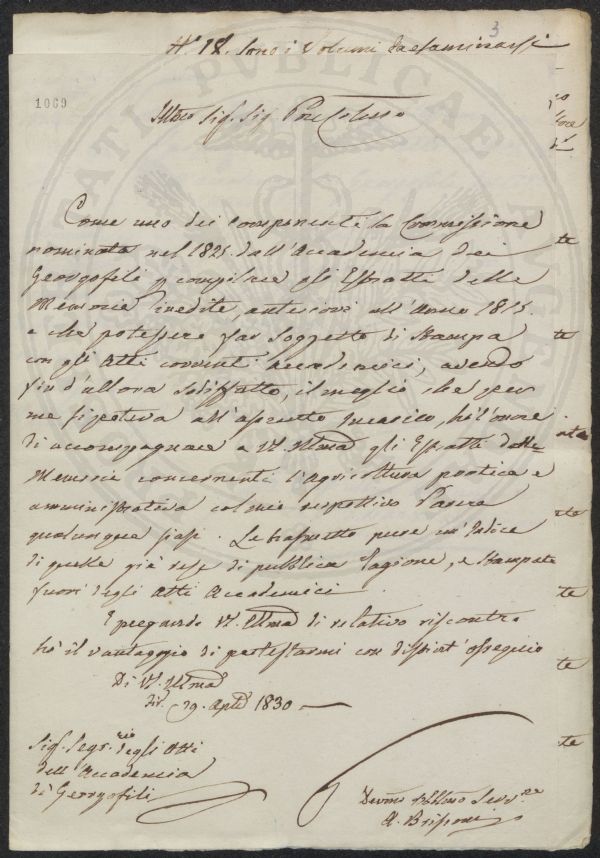 3
N. 18. sono i Volumi da esaminarsi
1069
Illmo Sig. Sig. Pne Colmo
Come uno dei componenti la Commissione
nominata nel 1825. dall'Accademia dei
Georgofili p compilare gli Estratti delle
Memorie inedite, anteriori all'Anno 1815.
e che potessero far soggetto di Stampa
con gli Atti correnti accademici, avendo
fin d'allora sodisfatto, il meglio che per
me si poteva all'assunto Incarico, hò l'onore
di accompagnare a VS. Illma gli Estratti delle
Memorie concernenti l'agricoltura pratica e
amministrativa col mio respettivo Parere
qualunque siasi. Le trasmetto pure un'Indice
di quelle già rese di pubblica ragione, e stampate
fuori degli Atti Accademici.
E pregando VS. Illma di relativo riscontro
hò il vantaggio di protestarmi con distint'ossequio
Di VS. Illma
29. Aple 1830
Sig. Segr.rio degli Atti
dell'Accademia
de' Georgofili
Devmo Obblmo Serv.re